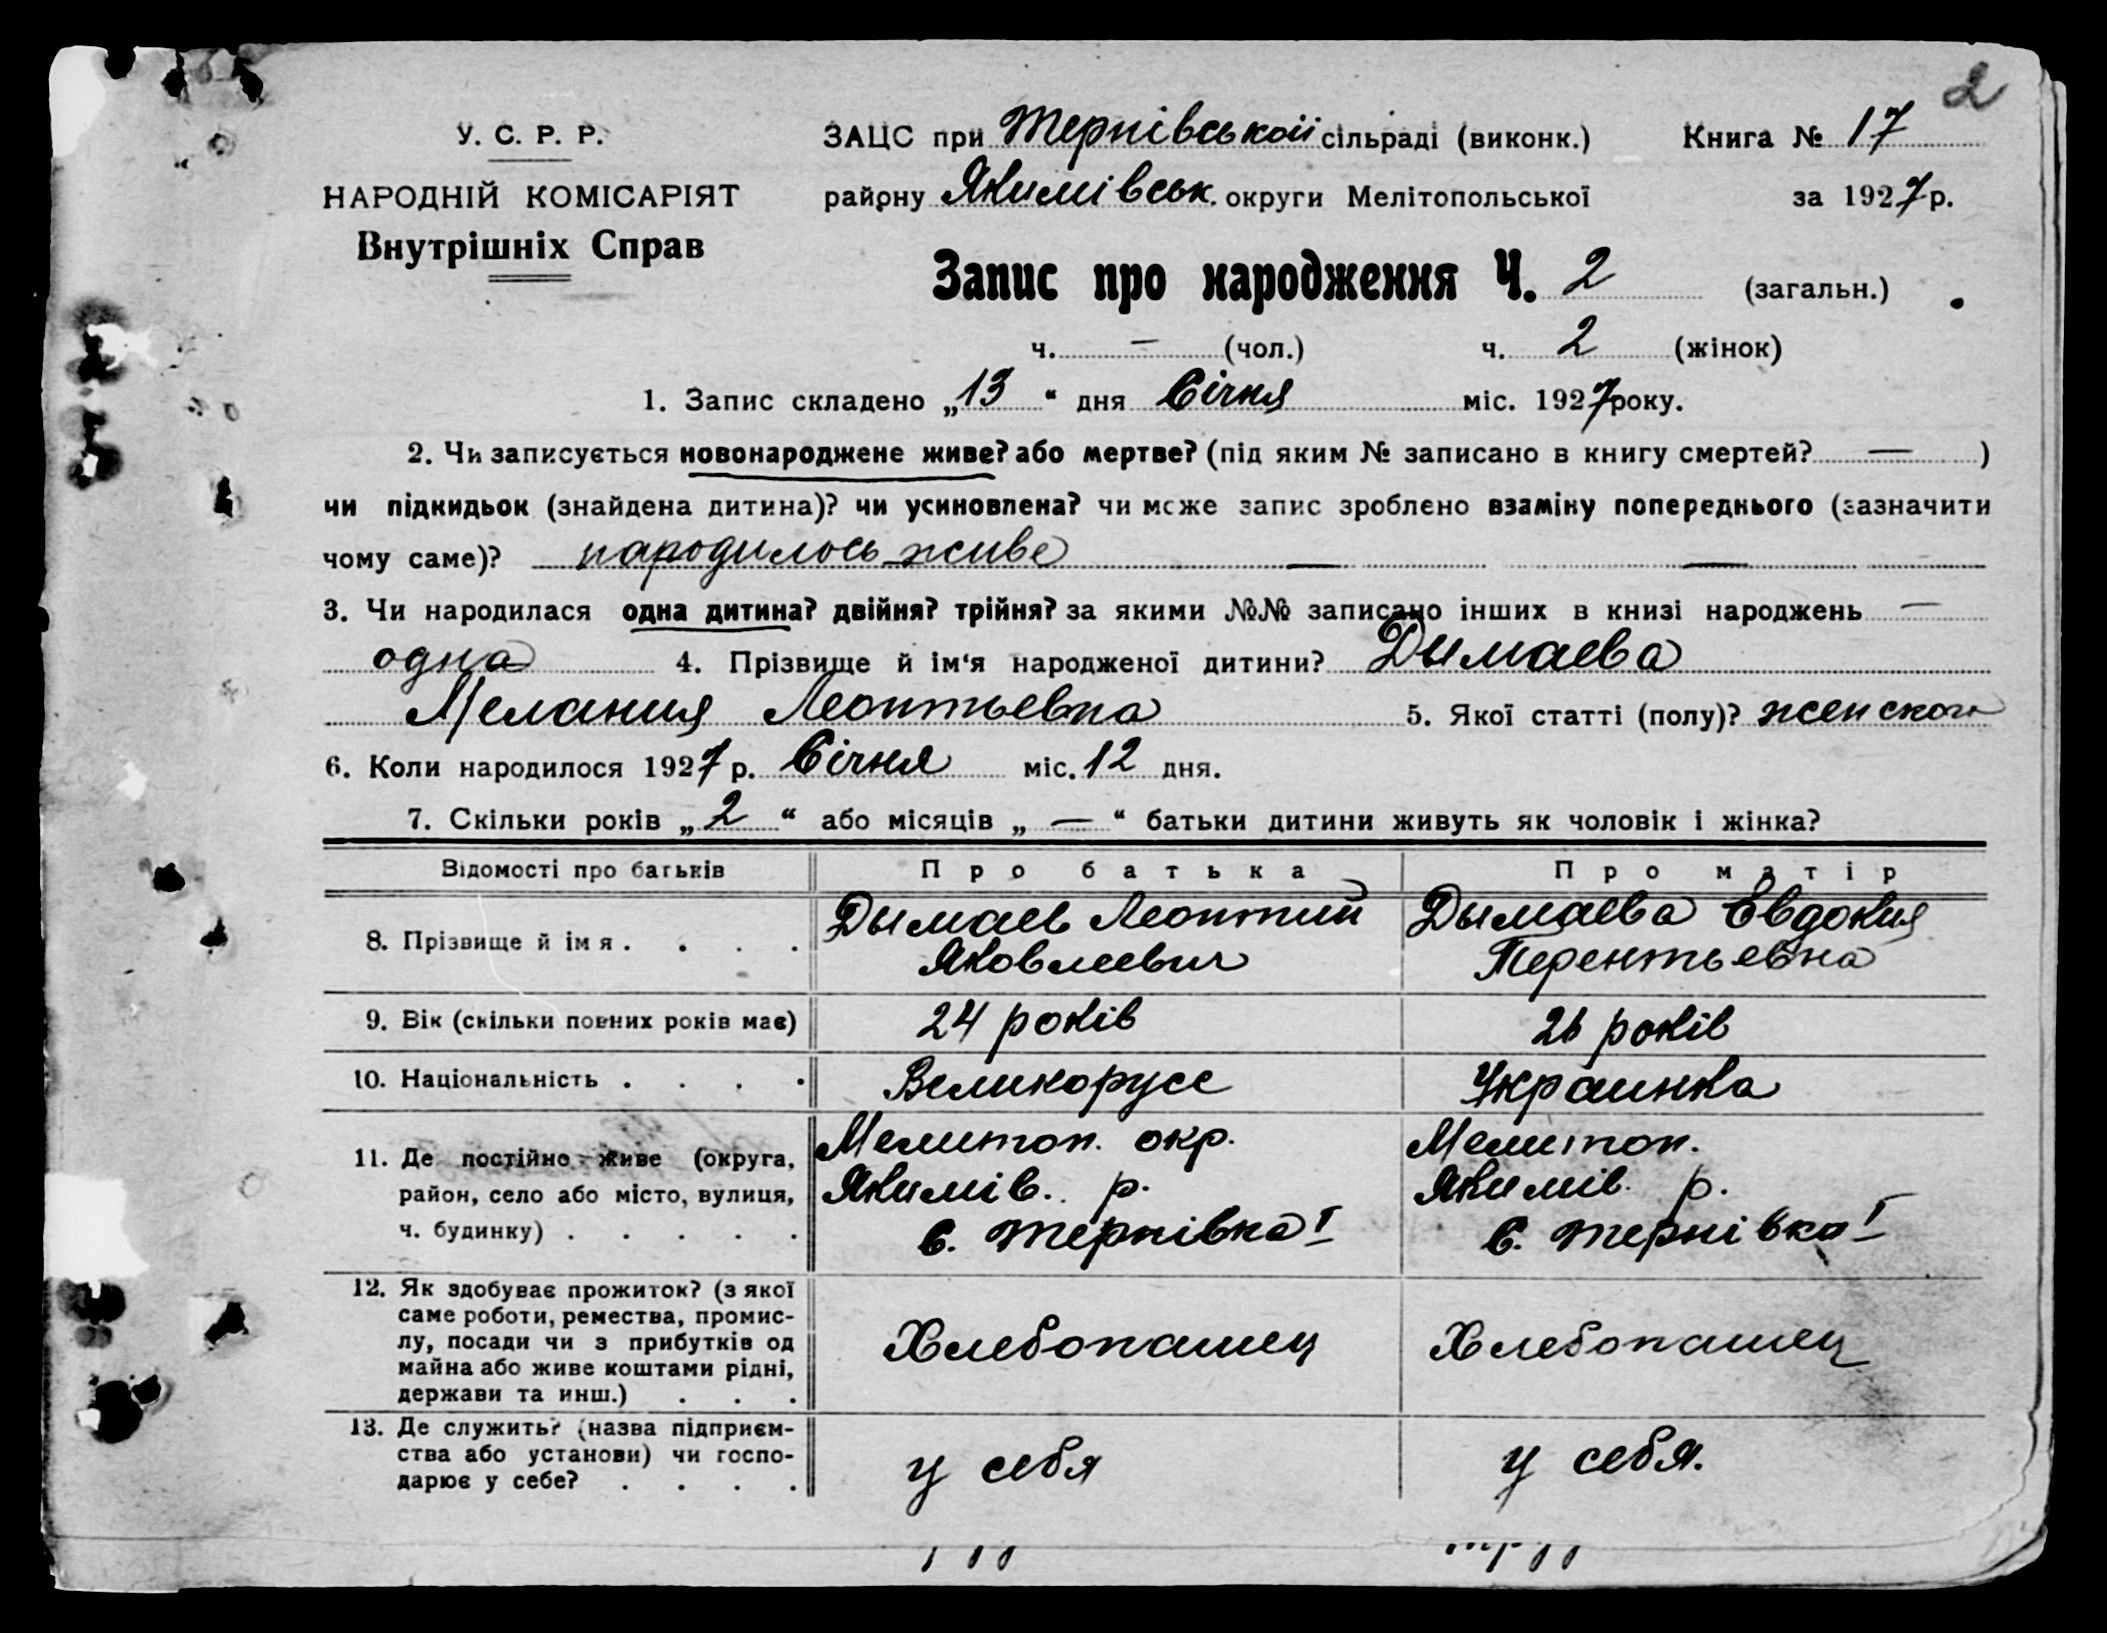 2
У. С. Р. Р.
НАРОДНІЙ КОМІСАРІЯТ
Внутрішніх Справ
ЗАЦС при Тернівськоїї сільраді (виконк.) Книга № 17
району Якимівськ. округи Мелітопольської за 1927 р.
Запис про народження Ч. 2 (загальн.)
ч. — (чол.) ч. 2 (жінок)
1. Запис складено „13“ дня Січня міс. 1927 року.
2. Чи записується новонароджене живе? або мертве? (під яким № записано в книгу смертей? — )
чи підкидьок (знайдена дитина)? чи усиновлена? чи може запис зроблено взаміну попереднього (зазначити
чому саме)? народилось живе — —
3. Чи народилася одна дитина? двійня? трійня? за якими №№ записано інших в книзі народжень —
одна 4. Прізвище й ім‘я народженої дитини? Дымаева
Мелания Леонтьевна 5. Якої статті (полу)? женского
6. Коли народилося 1927 р. Січня міс. 12 дня.
7. Скільки років „2“ або місяців „—“ батьки дитини живуть як чоловік і жінка?
Відомості про батьків Про батька Про матір
8. Прізвище й імя . . . .
Дымаев Леонтий
Яковлевич
Дымаева Евдокия
Терентьевна
9. Вік (скільки повних років має) 24 років 26 років
10. Національність . . . . Великорусс Украинка
11. Де постійно живе (округа,
район, село або місто, вулиця,
ч. будинку) . . . . .
Мелитоп. окр.
Якимів. р.
С. Тернівка I
Мелитоп.
Якимів. р.
С. Тернівка I
12. Як здобуває прожиток? (з якої
саме роботи, ремества, промис-
лу, посади чи з прибутків од
майна або живе коштами рідні,
держави та инш.) . . .
Хлебопашец
Хлебопашец
13. Де служить? (назва підприєм-
ства або установи) чи госпо-
дарює у себе? . . . .
у себя
у себя.